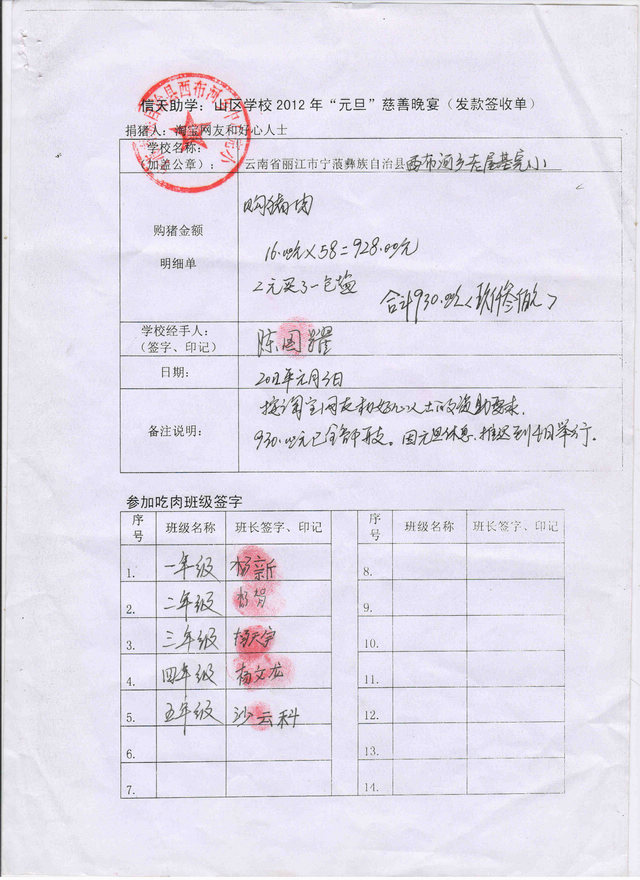 信天助学：山区学校2012年“元旦”慈善晚宴（发款签收单）
捐猪人：淘宝网友和好心人士
学校名称：
（加盖公章）：
云南省丽江市宁蒗彝族自治县西布河乡老屋基完小
购猪金额
明细单
购猪肉
16.00元×58=928.00元
2元买了一包盐
合计930.00元
学校经手人：
（签字、印记）
陈国耀
日期：
2012年元月4日
备注说明：
按淘宝网友和好心人士的资助要求，
930.00元已全部开支。因元旦休息，推迟到4日举行。
参加吃肉班级签字
序号 班级名称 班长签字、印记 序号 班级名称 班长签字、印记
1. 一年级 杨新 8.
2. 二年级 杨智 9.
3. 三年级 杨天宇 10.
4. 四年级 杨文龙 11.
5. 五年级 沙云科 12.
6. 13.
7. 14.